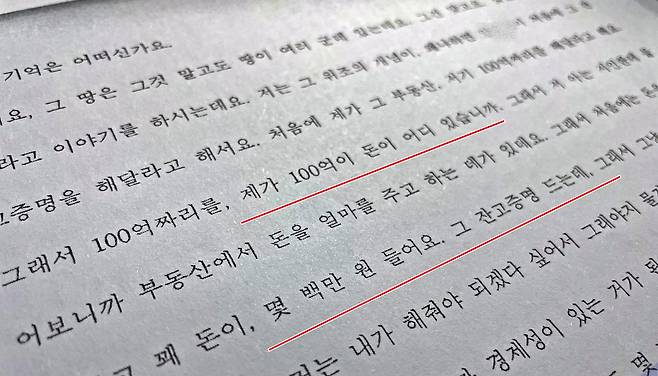 기억은 어떠신가요.
요, 그 땅은 그것 말고도 땅이 여러 군데 있는데요. 그건
라고 이야기를 하시는데요. 저는 그 위조의 개념이, 왜냐하면
고증명을 해달라고 해서요. 처음에 제가 그 부동산. 저기 100억짜리를 해달라고 해요
그래서 100억짜리를, 제가 100억이 돈이 어디 있습니까. 그래서 저 아는
어보니까 부동산에서 돈을 얼마를 주고 하는 데가 있데요. 그래서 처음에는 돈을
고 꽤 돈이, 몇 백만 원 들어요. 그 잔고증명 드는데, 그래서 그냥
내가 해줘야 되겠다 싶어서 그래야지 물
경제성이 있는 거가
몇